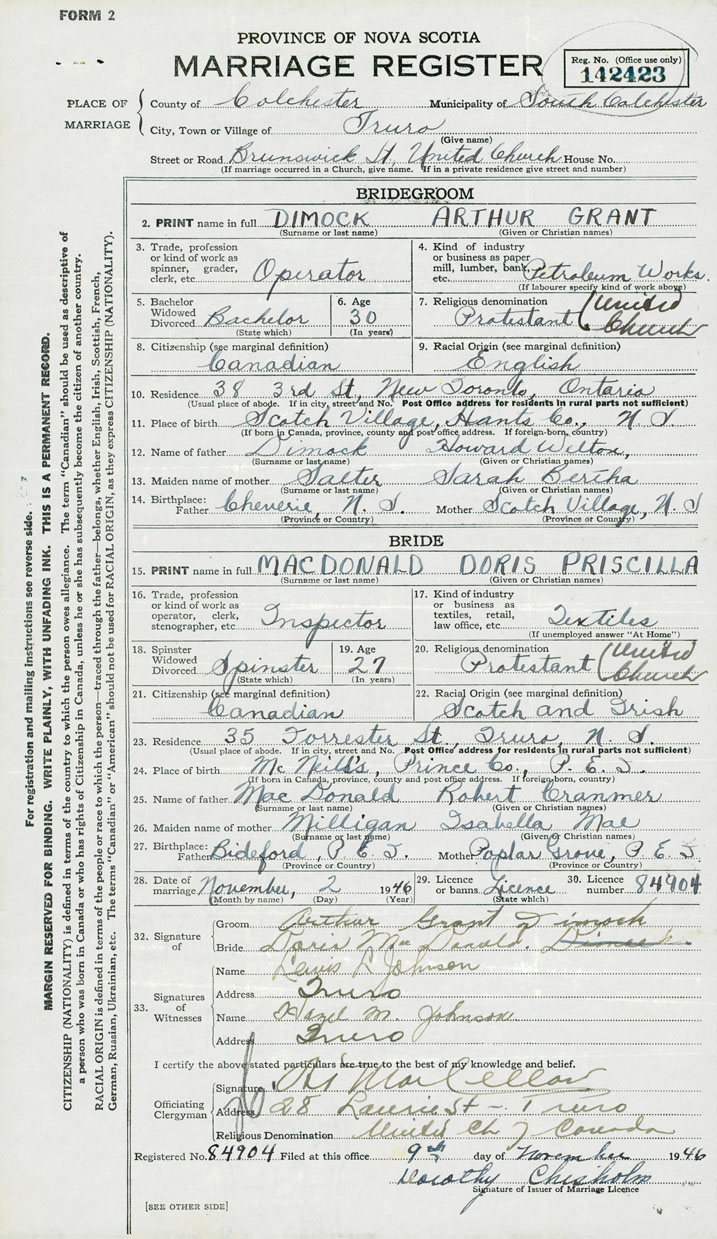 FORM 2
PROVINCE OF NOVA SCOTIA
MARRIAGE REGISTER
Reg. No. (Office use only)
142423
PLACE OF MARRIAGE
County of Colchester Municipality of South Colchester
City, Town or Village of Truro
(Give name)
Street or Road Brunswick St, United Church House No.
(If marriage occurred in a Church, give name. If in a private residence give street and number)
BRIDEGROOM
2. PRINT name in full DIMOCK ARTHUR GRANT
(Surname or last name) (Given or Christian names)
3. Trade, profession or kind of work as spinner, grader, clerk, etc. Operator
4. Kind of industry or business as paper mill, lumber, bank, etc. Petroleum Works.
(If labourer specify kind of work above)
5. Bachelor Widowed Divorced Bachelor
(State which)
6. Age 30
(In years)
7. Religious denomination Protestant (United Church
8. Citizenship (see marginal definition) Canadian
9. Racial Origin (see marginal definition) English
10. Residence 38 3rd St, New Toronto, Ontario
(Usual place of abode. If in city, street and No. Post Office address for residents in rural parts not sufficient)
11. Place of birth Scotch Village, Hants Co., N S
(If born in Canada, province, county and post office address. If foreign-born, country)
12. Name of father Dimock Howard Wilton,
(Surname or last name) (Given or Christian names)
13. Maiden name of mother Salter Sarah Bertha
(Surname or last name) (Given or Christian names)
14. Birthplace: Father Cheverie, N. S. Mother Scotch Village, N. S
(Province or Country) (Province or Country)
BRIDE
15. PRINT name in full MACDONALD DORIS PRISCILLA
(Surname or last name) (Given or Christian names)
16. Trade, profession or kind of work as operator, clerk, stenographer, etc. Inspector
17. Kind of industry or business as textiles, retail, law office, etc. Textiles
(If unemployed answer "At Home")
18. Spinster Widowed Divorced Spinster
(State which)
19. Age 27
(In years)
20. Religious denomination Protestant (United Church
21. Citizenship (see marginal definition) Canadian
22. Racial Origin (see marginal definition) Scotch and Irish
23. Residence 35 Forrester St, Truro, N. S.
(Usual place of abode. If in city, street and No. Post Office address for residents in rural parts not sufficient)
24. Place of birth Mc Neill's, Prince Co., P. E. I.
(If born in Canada, province, county and post office address. If foreign-born, country)
25. Name of father Mac Donald Robert Cranmer
(Surname or last name) (Given or Christian names)
26. Maiden name of mother Milligan Isabella Mae
(Surname or last name) (Given or Christian names)
27. Birthplace: Father Bideford, P E I. Mother Poplar Grove, P. E I
(Province or Country) (Province or Country)
28. Date of marriage November, 2 1946
(Month by name) (Day) (Year)
29. Licence or banns Licence
(State which)
30. Licence number 84904
32. Signature of
Groom Arthur Grant Dimock
Bride Doris Mac Donald
33. Signatures of Witnesses
Name Johnson
Address Truro
Name Hazel M. Johnson
Address Truro
I certify the above stated particulars are true to the best of my knowledge and belief.
Officiating Clergyman
Signature
Address 28 Laurie St - Truro
Religious Denomination United Ch of Canada
Registered No. 84904 Filed at this office 9th day of November 1946
Dorothy Chisholm
Signature of Issuer of Marriage Licence
[SEE OTHER SIDE]
For registration and mailing instructions see reverse side.
MARGIN RESERVED FOR BINDING. WRITE PLAINLY, WITH UNFADING INK. THIS IS A PERMANENT RECORD.
CITIZENSHIP (NATIONALITY) is defined in terms of the country to which the person owes allegiance. The term "Canadian" should be used as descriptive of
a person who was born in Canada or who has rights of Citizenship in Canada, unless he or she has subsequently become the citizen of another country.
RACIAL ORIGIN is defined in terms of the people or race to which the person—traced through the father—belongs, whether English, Irish, Scottish, French,
German, Russian, Ukrainian, etc. The terms "Canadian" or "American" should not be used for RACIAL ORIGIN, as they express CITIZENSHIP (NATIONALITY).